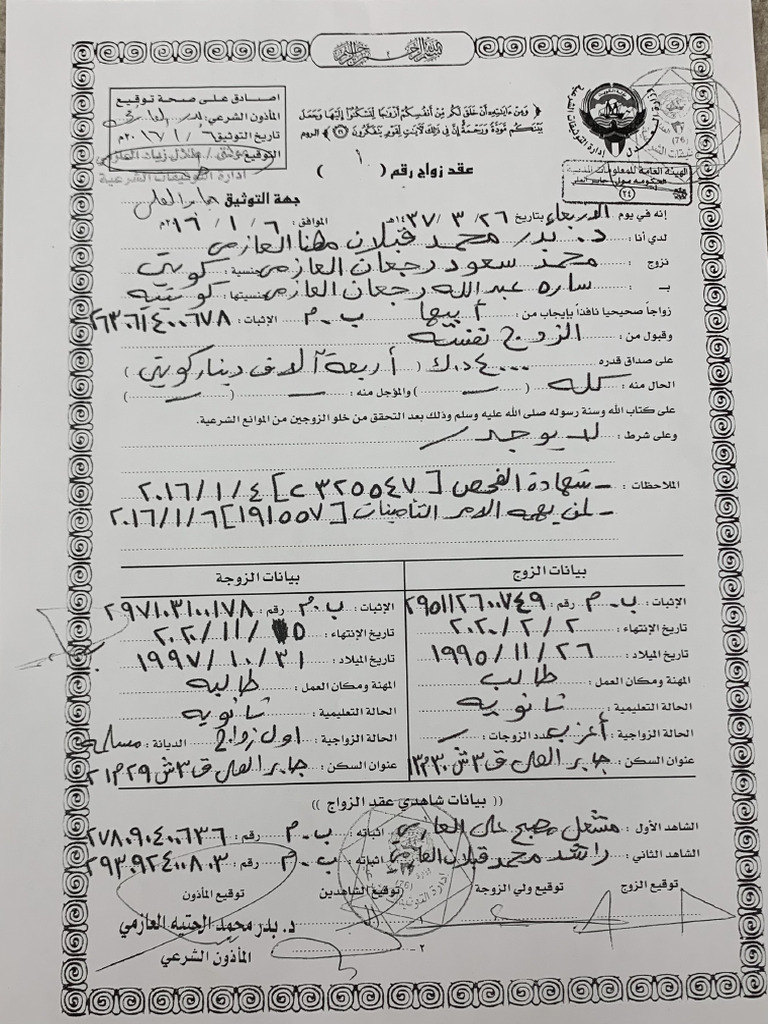 بسم الله الرحمن الرحيم
﴿ وَمِنْ ءَايَاتِهِ أَنْ خَلَقَ لَكُم مِّنْ أَنفُسِكُمْ أَزْوَاجًا لِّتَسْكُنُوا إِلَيْهَا وَجَعَلَ
بَيْنَكُم مَّوَدَّةً وَرَحْمَةً إِنَّ فِي ذَلِكَ لَآيَاتٍ لِّقَوْمٍ يَتَفَكَّرُونَ ﴾ الروم
اصادق على صحة توقيع
المأذون الشرعي:
تاريخ التوثيق ٦ / ١ / ٢٠١٦م
التوقيع
إدارة التوثيقات الشرعية
إدارة التوثيقات الشرعية
الهيئة العامة للمعلومات المدنية
(٢٤)
عقد زواج رقم ( ١ )
جهة التوثيق جابر العلي
إنه في يوم الاربعاء بتاريخ ٢٦ / ٣ / ١٤٣٧هـ الموافق: ٦ / ١ / ٢٠١٦م
لدي أنا: د. بدر محمد قبلان مهنا العازمي
تزوج: محمد سعود رجعان العازمي جنسيته: كويتي
بـ: ساره عبدالله رجعان العازمي جنسيتها: كويتية
زواجاً صحيحيا نافذاً بإيجاب من: أبيها ب.م الإثبات: ٢٦٣٠٦١٤٠٠٦٧٨
وقبول من: الزوج نفسه
على صداق قدره ٤٠٠٠ د.ك ( أربعة آلاف دينار كويتي )
الحال منه: ( كله ) والمؤجل منه: ( )
على كتاب الله وسنة رسوله صلى الله عليه وسلم وذلك بعد التحقق من خلو الزوجين من الموانع الشرعية.
وعلى شرط: لا يوجد
الملاحظات: - شهادة الفحص [ C ٣٢٥٥٤٧ ] ٢٠١٦/١/٤
- لمن يهمه الامر التأمينات [ ١٩١٥٥٧ ] ٢٠١٦/١/٦
بيانات الزوج
الإثبات: ب.م رقم: ٢٩٥١١٢٦٠٠٧٤٩
تاريخ الإنتهاء: ٢ / ٢ / ٢٠٢٠
تاريخ الميلاد: ٢٦ / ١١ / ١٩٩٥
المهنة ومكان العمل: طالب
الحالة التعليمية: ثانويه
الحالة الزواجية: أعزب عدد الزوجات: -
عنوان السكن: جابر العلي ق٣ ش٣٠ م١٣
بيانات الزوجة
الإثبات: ب.م رقم: ٢٩٧١٠٣١٠٠١٧٨
تاريخ الإنتهاء: ٥ / ١١ / ٢٠٢٠
تاريخ الميلاد: ٣١ / ١٠ / ١٩٩٧
المهنة ومكان العمل: طالبه
الحالة التعليمية: ثانويه
الحالة الزواجية: اول زواج الديانة: مسلمه
عنوان السكن: جابر العلي ق٣ ش٢٩ م٢١
(( بيانات شاهدي عقد الزواج ))
الشاهد الأول: مشعل مصبح العازمي اثباته: ب.م رقم: ٢٧٨٠٩٠٤٠٠٦٣٦
الشاهد الثاني: راشد محمد قبلان العازمي اثباته: ب.م رقم: ٢٩٣٠٩٢٤٠٠٨٠٣
توقيع الزوج توقيع ولي الزوجة توقيع الشاهدين توقيع المأذون
١ -
٢ -
د. بدر محمد الحتيه العازمي
المأذون الشرعي